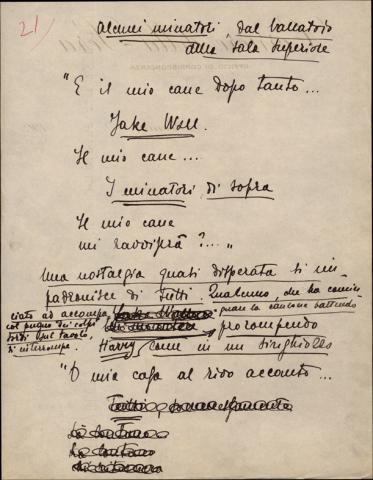 21
Alcuni minatori, dal ballatoio
della sala superiore
"E il mio cane dopo tanto...
Jake Wall.
Il mio cane...
I minatori, di sopra
Il mio cane
mi ravviserà?..."
Una nostalgia quasi disperata si im-
padronisce di tutti. Qualcuno, che ha comin-
ciato ad accompa-
gnare la canzone battendo
col pugno dei colpi
sordi sul tavolo,
si interrompe.
prorompendo
Harry, come in un singhiozzo
"O mia casa al rivo accanto...
Tutti, sommessamente
Là lontano
Là lontano